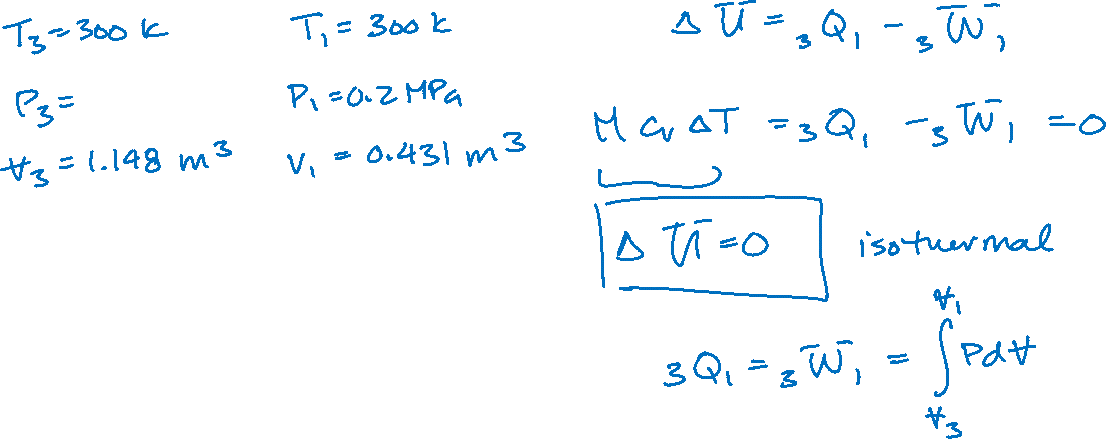 T₃ = 300 K
P₃ =
V₃ = 1.148 m³
T₁ = 300 K
P₁ = 0.2 MPa
V₁ = 0.431 m³
Δ U = ₃Q₁ - ₃W₁
M Cv ΔT = ₃Q₁ - ₃W₁ = 0
Δ U = 0 isothermal
₃Q₁ = ₃W₁ = ∫ P dV
V₁
V₃